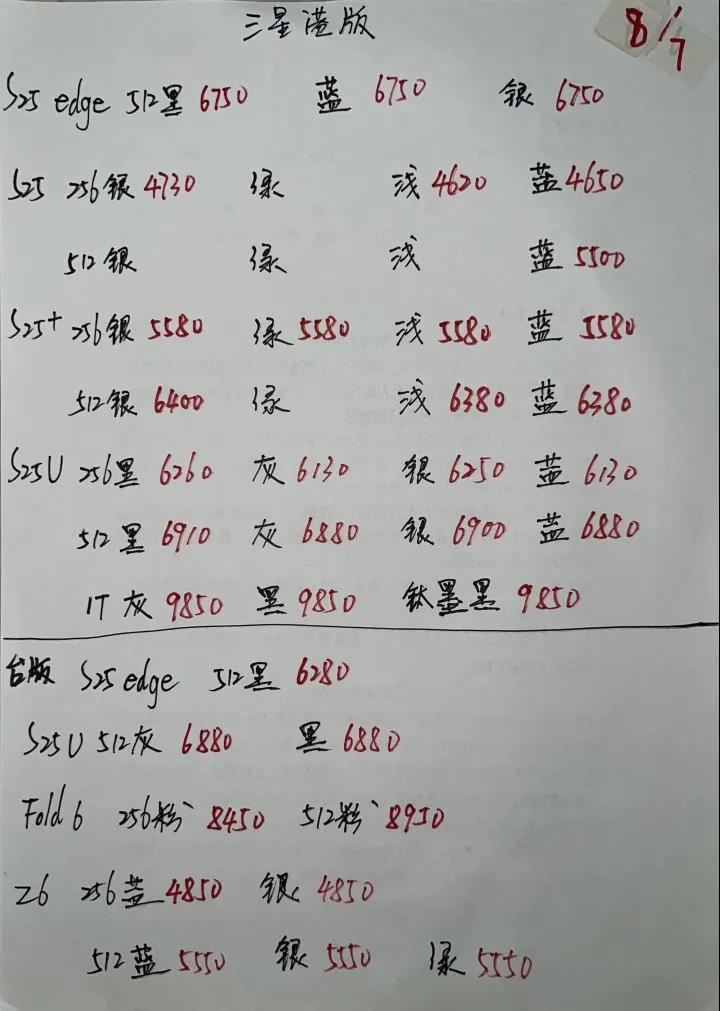 三星港版 8/7
S25 edge 512黑 6750 蓝 6750 银 6750
S25 256银 4730 绿 浅 4620 蓝 4650
512银 绿 浅 蓝 5500
S25+ 256银 5580 绿 5580 浅 5580 蓝 5580
512银 6400 绿 浅 6380 蓝 6380
S25U 256黑 6260 灰 6130 银 6250 蓝 6130
512黑 6910 灰 6880 银 6900 蓝 6880
1T 灰 9850 黑 9850 钛墨黑 9850
台版 S25 edge 512黑 6280
S25U 512灰 6880 黑 6880
Fold 6 256粉 8450 512粉 8950
Z6 256蓝 4850 银 4850
512蓝 5550 银 5550 绿 5550